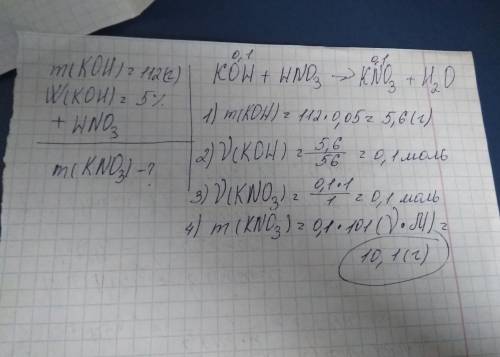 m(KOH) = 112(г)
W(KOH) = 5%
+ HNO₃
m(KNO₃) - ?
0,1 0,1
KOH + HNO₃ → KNO₃ + H₂O
1) m(KOH) = 112 · 0,05 = 5,6 (г)
2) ν(KOH) = 5,6/56 = 0,1 моль
3) ν(KNO₃) = 0,1·1/1 = 0,1 моль
4) m(KNO₃) = 0,1 · 101 (ν · M) =
10,1(г)